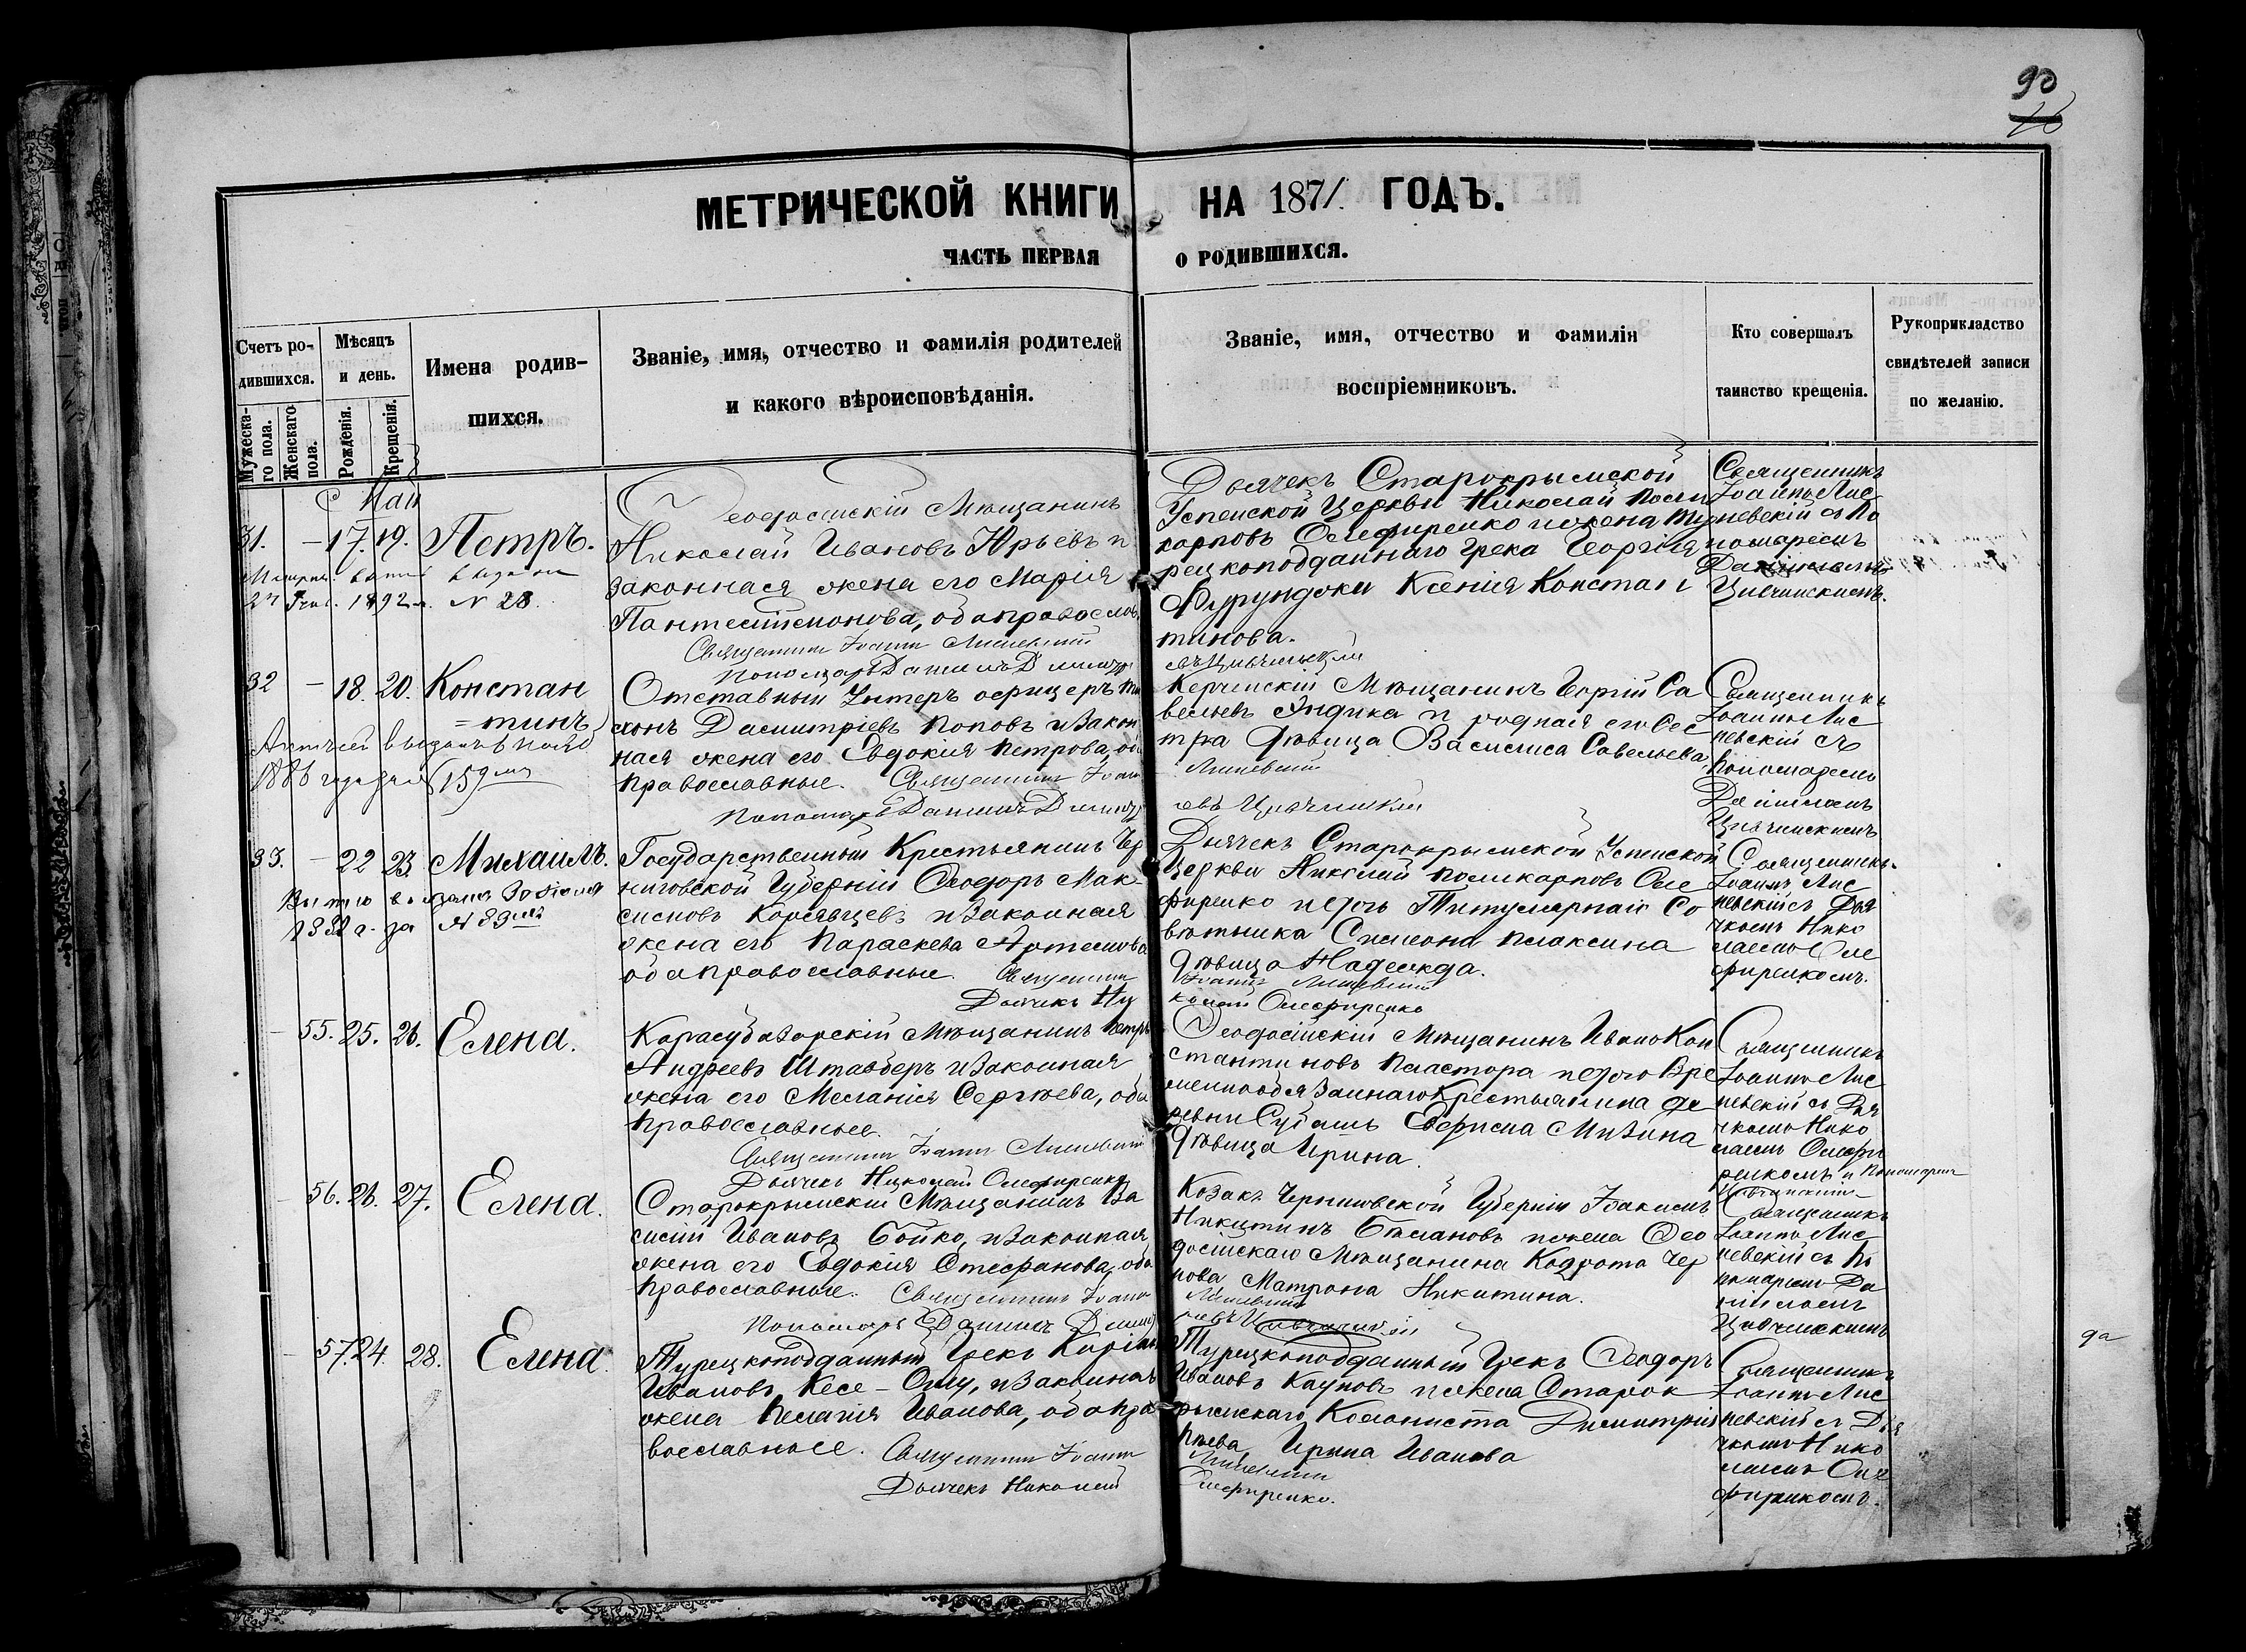 90
МЕТРИЧЕСКОЙ КНИГИ НА 1871 ГОДЪ.
ЧАСТЬ ПЕРВАЯ О РОДИВШИХСЯ.
Счетъ ро-
дившихся.
Мужеска-
го пола.
Женскаго
пола.
Мѣсяцъ
и день.
Рожденія.
Крещенія.
Имена родив-
шихся.
Званіе, имя, отчество и фамилія родителей
и какого вѣроисповѣданія.
Званіе, имя, отчество и фамилія
воспріемниковъ.
Кто совершалъ
таинство крещенія.
Рукоприкладство
свидѣтелей записи
по желанію.
Май
31. — 17. 19. Петръ.
2 1892 г. № 28.
Ѳеодосійскій Мѣщанинъ
Николай Ивановъ Юрьевъ и
законная жена его Марія
Пантелеймонова, оба православ
Священникъ Іоаннъ Лисневскій
Пономарь Даніилъ
Дьячекъ Старокрымской
Успенской Церкви Николай Поли
карповъ Олефиренко и жена Ту
рецкоподданнаго Грека Георгія
Фурунджи Ксенія Констан
тинова.
Священникъ
Іоаннъ Лис
невскій съ По
номаремъ
Даніиломъ
32 — 18. 20. Констан
=тинъ
1886 года за № 159
Отставный Унтеръ офицеръ
Димитріевъ Поповъ и Закон
ная жена его Евдокия Петрова, об
Православные. Священникъ Іоан
Пономарь Даніилъ Димит
Керчинскій Мѣщанинъ Георгій Са
вельевъ Яндика и родная его Сес
тра Дѣвица Василиса Савельева
Лисневскій
Священникъ
Іоаннъ Лис
невскій съ
Пономаремъ
Даніиломъ
33. — 22 23. Михаилъ.
№ 89
Государственный Крестьянинъ Чер
ниговской Губерніи Ѳеодоръ Мак-
симовъ Корсавцевъ и Законная
жена его Параскева Артемова
оба Православные. Священникъ
Дьячекъ Ни
Дьячекъ Старокрымской Успенской
Церкви Николай Поликарповъ Оле
фиренко и дочь Титулярнаго Со
вѣтника Симеона Плаксина
Дѣвица Надежда.
Іоаннъ Лисневскій
колай Олефиренко
Священникъ
Іоаннъ Лис
невскій съ Дья
чкомъ Нико
лаемъ Оле
фиренкомъ.
— 55. 25. 26. Елена.
Карасубазарскій Мѣщанинъ Петръ
Андреевъ Шталберъ и Законная
жена его Меланія Сергѣева, оба
Православные.
Священникъ Іоаннъ Лисневскій
Дьячекъ Николай Олефиренко
Ѳеодосійскій Мѣщанинъ Иванъ Кон
стантиновъ Пластора и дочь Вре
меннообязаннаго Крестьянина де
ревни Субашъ Ефрема Мизина
Дѣвица Ирина.
Священникъ
Іоаннъ Лис
невскій съ Дья
чкомъ Нико
лаемъ Олефи
ренкомъ и Пономаремъ
— 56. 26. 27. Елена.
Старокрымскій Мѣщанинъ Ва
силій Ивановъ Бойко, и Законная
жена его Евдокия Стефанова, оба
Православные. Священникъ Іоаннъ
Пономарь Даніилъ Димит
Козакъ Черниговской Губерніи Іоакимъ
Никитинъ Бѣлановъ и жена Ѳео
досійскаго Мѣщанина Кодрота Чер
нова Матрона Никитина.
Лисневскій
Священникъ
Іоаннъ Лис
невскій съ По
номаремъ Да
ніиломъ
— 57. 24. 28. Елена.
Турецкоподданный Грекъ
Ивановъ Кесе-Оглу, и Законная
жена Пелагія Иванова, оба Пра
вославные. Священникъ Іоаннъ
Дьячекъ Николай
Турецкоподданный Грекъ Ѳеодоръ
Ивановъ Кауповъ и жена Старок
рымскаго Колониста Димитрія
Ирина Иванова
Лисневскій
Олефиренко.
Священникъ
Іоаннъ Лис
невскій съ Дья
чкомъ Нико
лаемъ Оле
фиренкомъ.
да